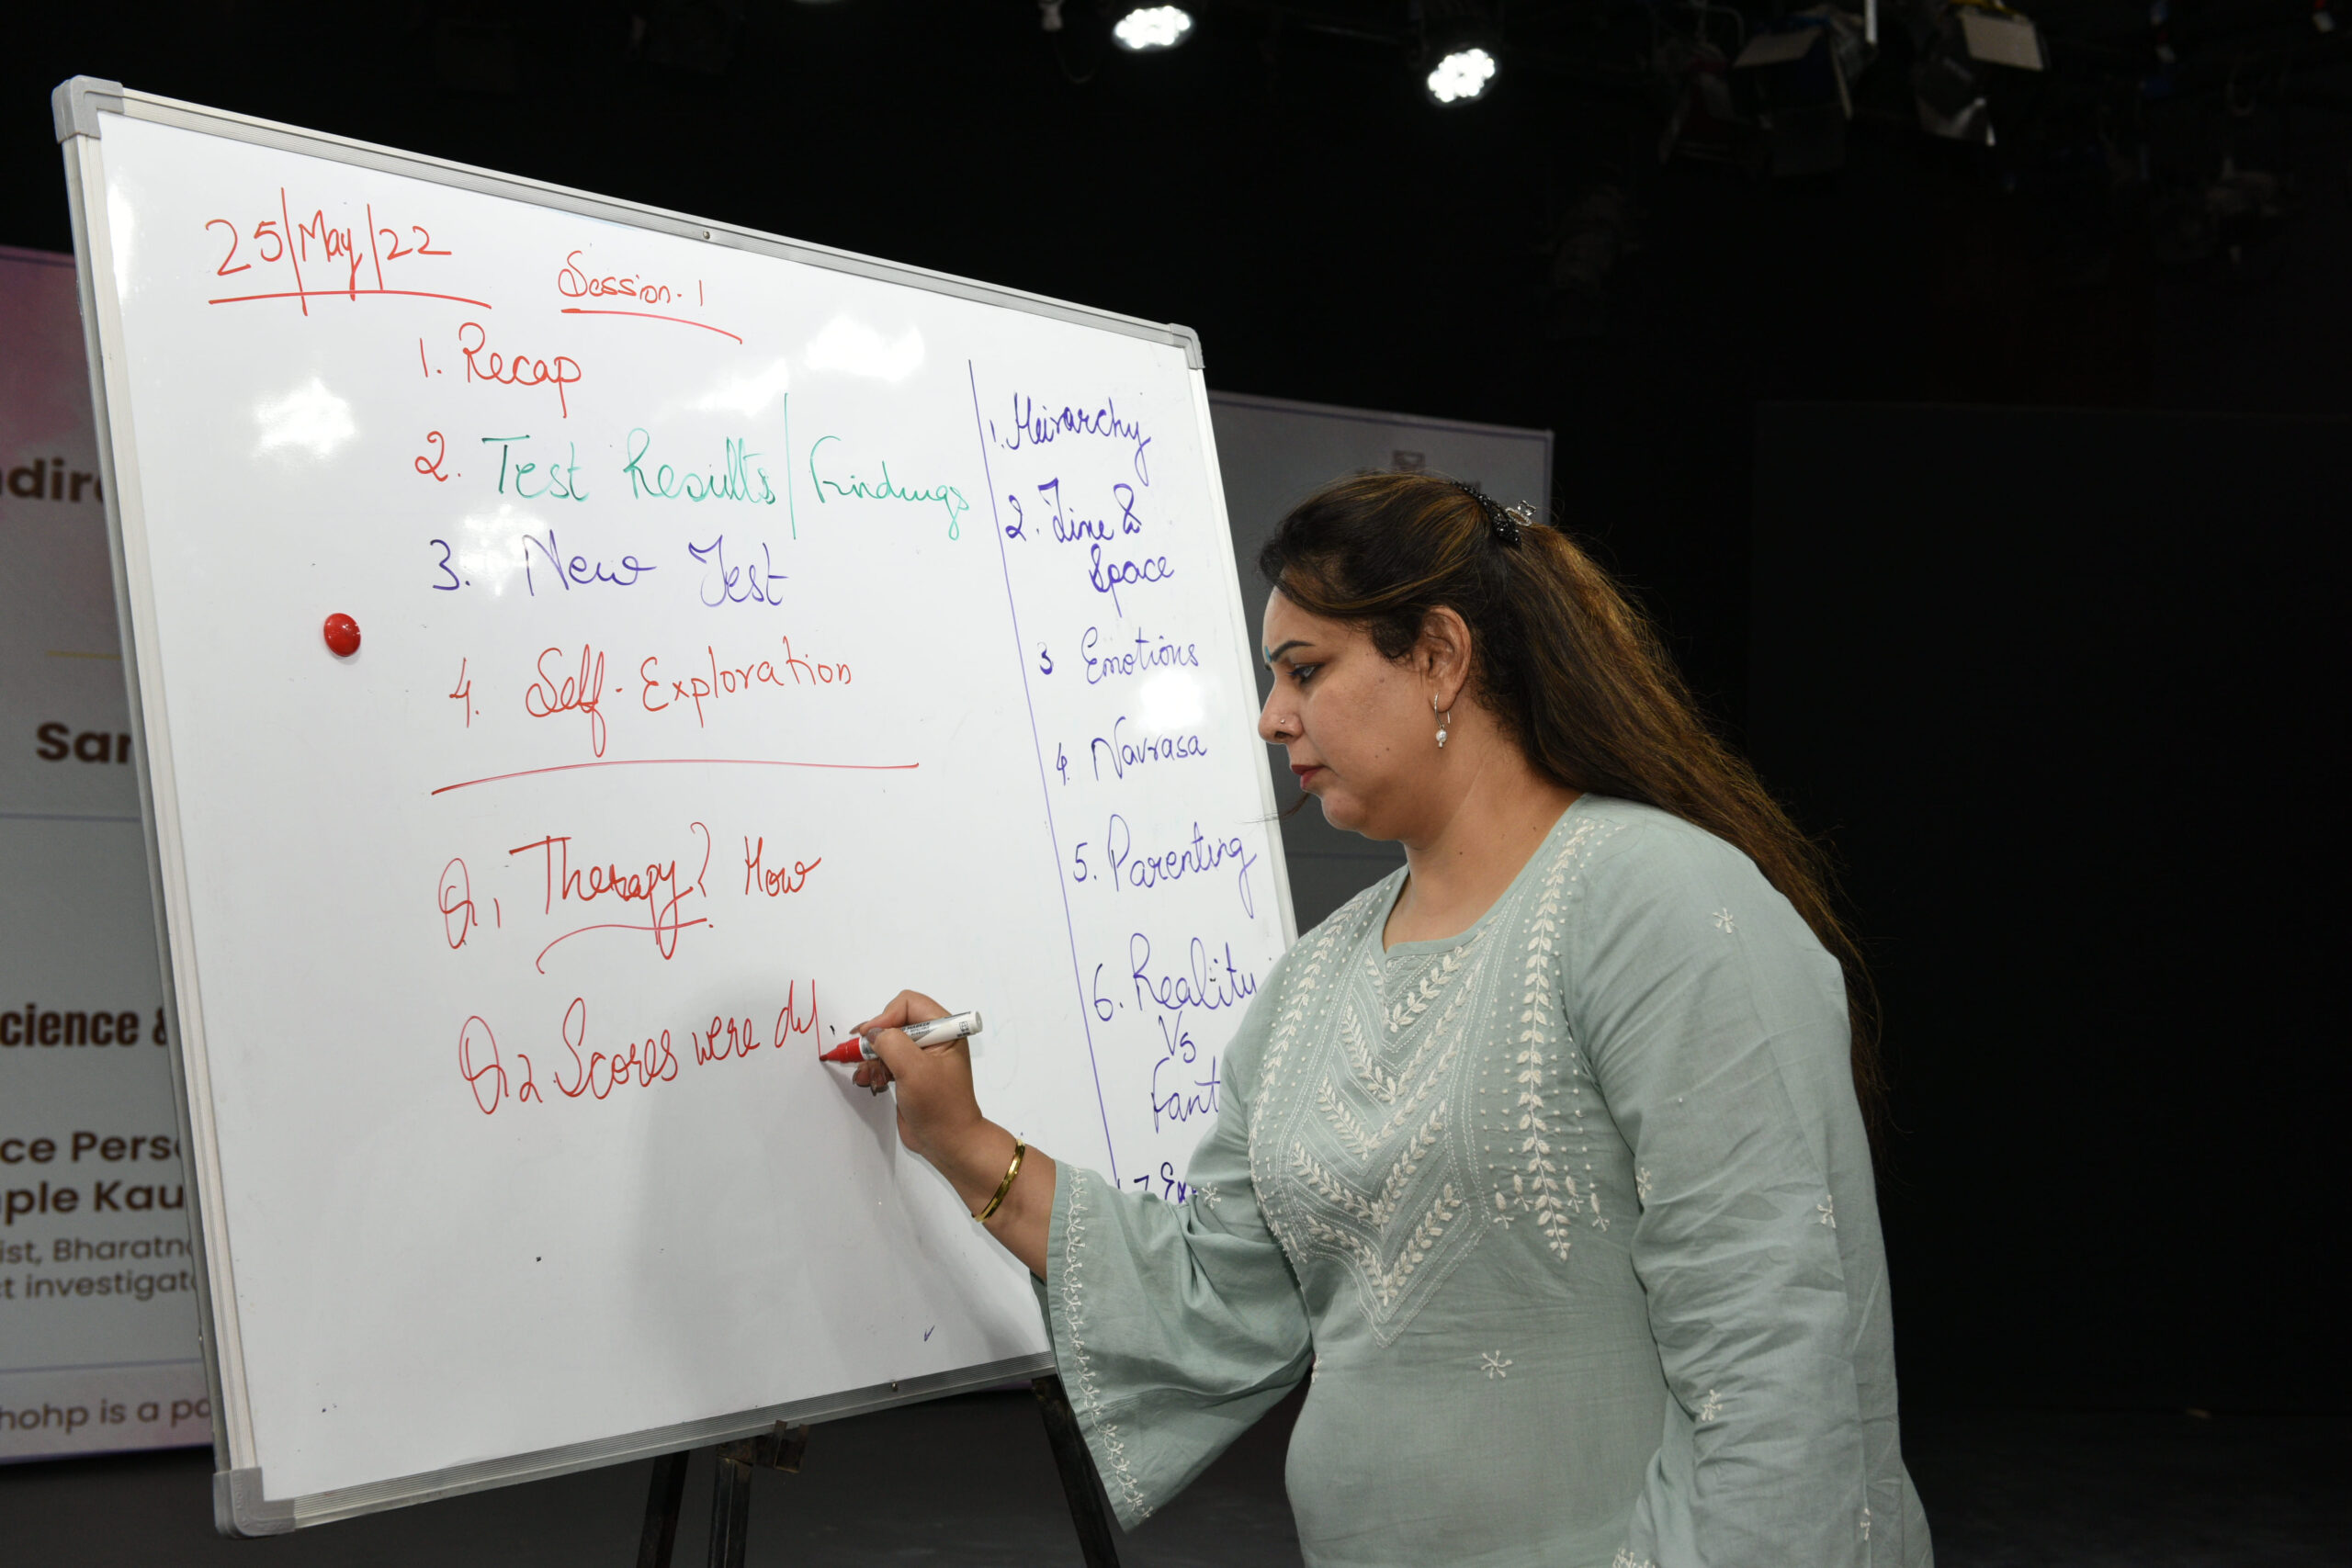 25/May/22
Session. 1
1. Recap
2. Test Results/Findings
3. New Test
4. Self-Exploration
Q.1 Therapy? How
Q.2 Scores were
1. Heirarchy
2. Time &
Space
3 Emotions
4. Navrasa
5. Parenting
6. Reality
Vs
Fant
7 Ex
ndir
Sar
cience &
ce Pers
ple Kau
ist, Bharatn
ct investigat
hohp is a pa